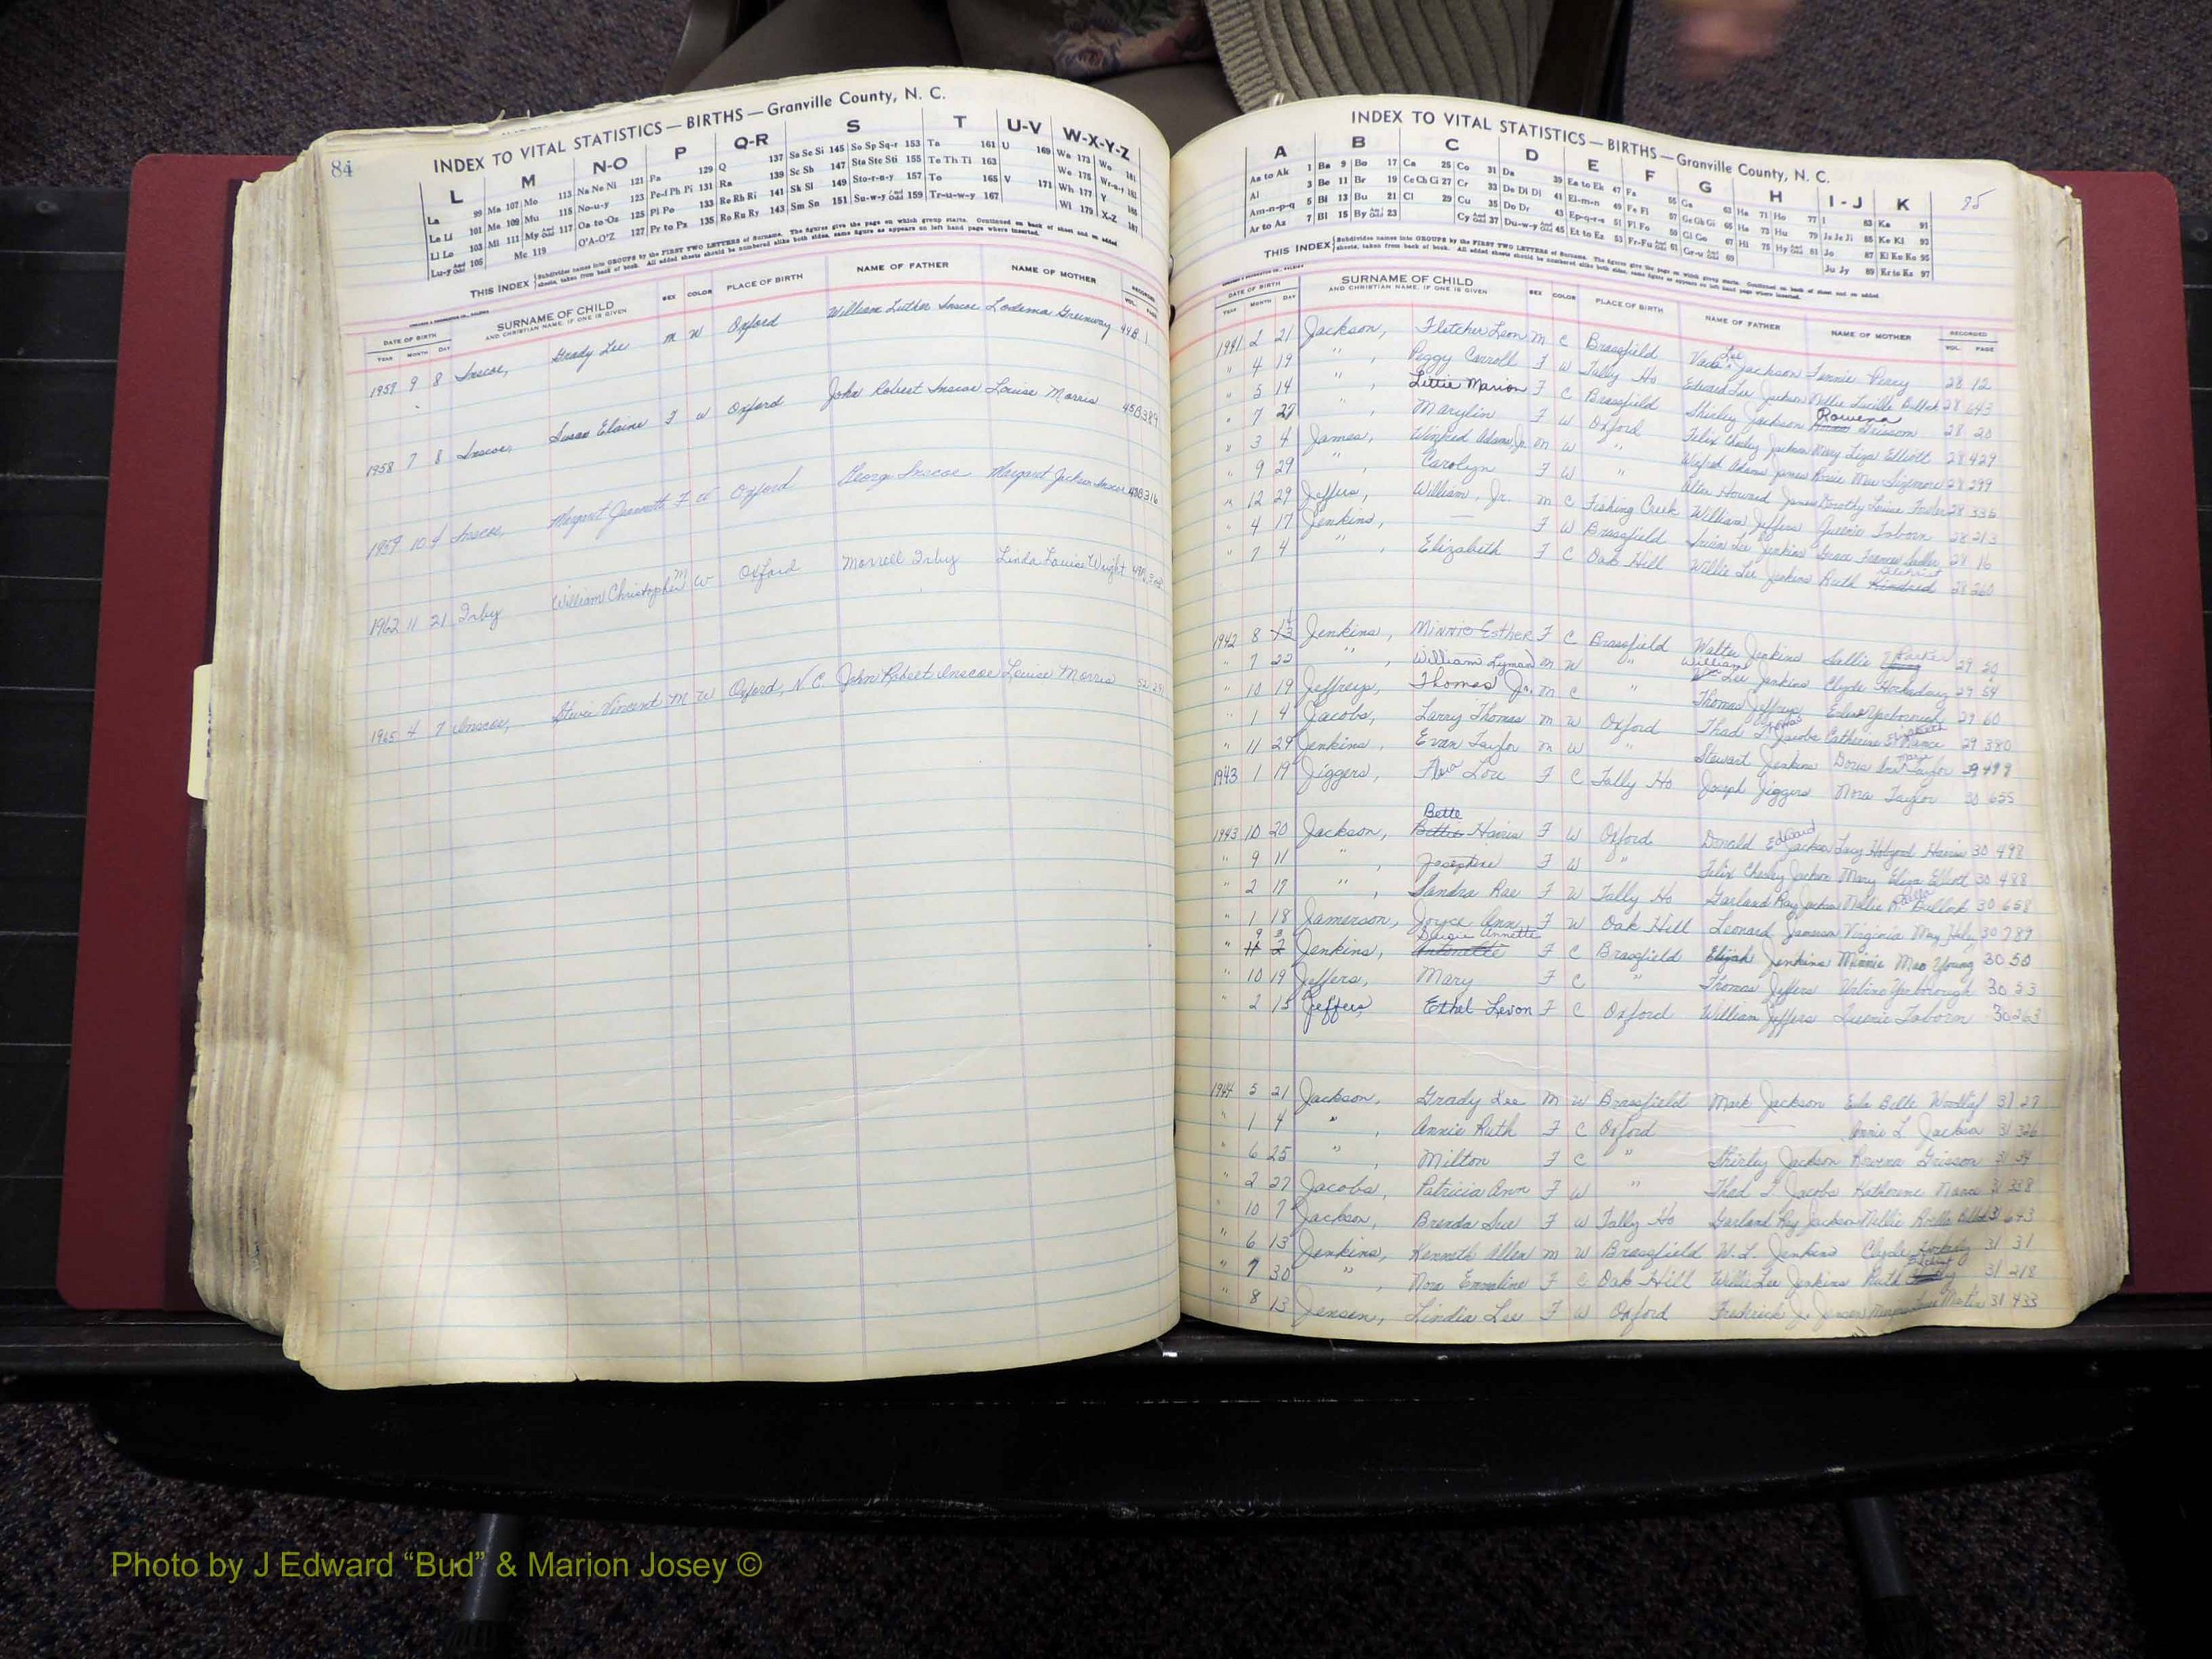 84
INDEX TO VITAL STATISTICS — BIRTHS — Granville County, N. C.
L M N-O P Q-R S T U-V W-X-Y-Z
La 99 Ma 107 Mo 113 Na Ne Ni 121 Pa 129 Q 137 Sa Se Si 145 So Sp Sq-r 153 Ta 161 U 169 Wa 173 Wo 181
Le Li 101 Me 109 Mu 115 No-u-y 123 Pe-f Ph Pi 131 Ra 139 Sc Sh 147 Sta Ste Sti 155 Te Th Ti 163 We 175
Ll Lo 103 Mi 111 My And Odd 117 Oa to Oz 125 Pl Po 133 Re Rh Ri 141 Sk Sl 149 Sto-r-n-y 157 To 165 V 171 Wh 177 Y 185
Lu-y And Odd 105 Mc 119 O'A-O'Z 127 Pr to Pz 135 Ro Ru Ry 143 Sm Sn 151 Su-w-y And Odd 159 Tr-u-w-y 167 Wi 179 X-Z 187
THIS INDEX Subdivides names into GROUPS by the FIRST TWO LETTERS of Surname. The figures give the page on which group starts. Continued on back of sheet and on added
sheets, taken from back of book. All added sheets should be numbered alike both sides, same figure as appears on left hand page where inserted.
DATE OF BIRTH SURNAME OF CHILD SEX COLOR PLACE OF BIRTH NAME OF FATHER NAME OF MOTHER RECORDED
YEAR MONTH DAY AND CHRISTIAN NAME, IF ONE IS GIVEN VOL. PAGE
1957 9 8 Inscoe, Grady Lee m w Oxford William Luther Inscoe Lodema Greenway 44B 1
1958 7 8 Inscoe, Susan Elaine F w Oxford John Robert Inscoe Louise Morris 45B 389
1959 10 4 Inscoe, Margaret Jeannette F w Oxford George Inscoe Margaret Jackson Inscoe 316
1962 11 21 Irby William Christopher M W Oxford Morrell Irby Linda Louise Wright
1965 4 7 Inscoe, Stevie Vincent M W Oxford, N.C. John Robert Inscoe Louise Morris
INDEX TO VITAL STATISTICS — BIRTHS — Granville County, N. C.
85
A B C D E F G H I - J K
Aa to Ak 1 Ba 9 Bo 17 Ca 25 Co 31 Da 39 Ea to Ek 47 Fa 55 Ga 63 Ha 71 Ho 77 I 83 Ka 91
Al 3 Be 11 Br 19 Ce Ch Ci 27 Cr 33 De Di Dj 41 El-m-n 49 Fe Fi 57 Ge Gh Gi 65 He 73 Hu 79 Ja Je Ji 85 Ke Ki 93
Am-n-p-q 5 Bi 13 Bu 21 Cl 29 Cu 35 Do Dr 43 Ep-q-r-s 51 Fl Fo 59 Gl Go 67 Hi 75 Hy And Odd 81 Jo 87 Kl Kn Ko 95
Ar to Az 7 Bl 15 By And Odd 23 Cy And Odd 37 Du-w-y And Odd 45 Et to Ez 53 Fr-Fu And Odd 61 Gr-u And Odd 69 Ju Jy 89 Kr to Kz 97
THIS INDEX Subdivides names into GROUPS by the FIRST TWO LETTERS of Surname. The figures give the page on which group starts. Continued on back of sheet and on added
sheets, taken from back of book. All added sheets should be numbered alike both sides, same figure as appears on left hand page where inserted.
DATE OF BIRTH SURNAME OF CHILD SEX COLOR PLACE OF BIRTH NAME OF FATHER NAME OF MOTHER RECORDED
YEAR MONTH DAY AND CHRISTIAN NAME, IF ONE IS GIVEN VOL. PAGE
1941 2 21 Jackson, Fletcher Leon M C Brassfield Lee Jackson Fannie Perry 28 12
" 4 19 " , Peggy Carroll F W Tally Ho Edward Lee Jackson Nellie Lucille Bullock 28 643
" 5 14 " , Littie Marion F C Brassfield Shirley Jackson Rowena Grissom 28 20
" 7 27 " , Marylin F W Oxford Felix Chesley Jackson Mary Liza Elliott 28 429
" 3 4 James, Winfred Adams, Jr. m w " Winfred Adams James Rosie Mae Sizemore 28 299
" 9 29 " , Carolyn F W " Howard James Dorothy Louise Fowler 28 336
" 12 29 Jeffers, William, Jr. m C Fishing Creek William Jeffers Queenie Taborn 28 213
" 4 17 Jenkins, — F W Brassfield Irvin Lee Jenkins Grace Frances Sadler 28 16
" 7 4 " , Elizabeth F C Oak Hill Willie Lee Jenkins Ruth Kindred 28 260
1942 8 13 Jenkins, Minnie Esther F C Brassfield Walter Jenkins Sallie 29 50
" 7 22 " , William Lyman m w " William Lee Jenkins Clyde Hockaday 29 54
" 10 19 Jeffreys, Thomas Jr. m C " Thomas Jeffreys Yarborough 29 60
" 1 4 Jacobs, Larry Thomas m w Oxford Thad Jacobs Catherine Elizabeth Nance 29 380
" 11 29 Jenkins, Evan Taylor m w " Stewart Jenkins Doris Ann Taylor 29 499
1943 1 19 Jiggers, Lou F C Tally Ho Joseph Jiggers Nora Taylor 30 655
1943 10 20 Jackson, Bette Bettie Harris F W Oxford Donald Edward Jackson Lucy Harris 30 498
" 9 11 " , Josephine F W " Felix Chesley Jackson Mary Eliza Elliott 30 488
" 2 17 " , Sandra Rae F W Tally Ho Garland Ray Jackson Nellie Bullock 30 658
" 1 18 Jamerson, Joyce Ann F W Oak Hill Leonard Jamerson Virginia May Haley 30 789
" 9 11 2 Jenkins, Annette Antonette F C Brassfield Elijah Jenkins Minnie Mae Young 30 50
" 10 19 Jeffers, Mary F C " Thomas Jeffers Yarborough 30 53
" 2 15 Jeffers, Ethel Levon F C Oxford William Jeffers Queenie Taborn 30 263
1944 5 21 Jackson, Grady Lee M W Brassfield Mark Jackson Eula Belle Woodlief 31 27
" 1 4 " , Annie Ruth F C Oxford — Annie L. Jackson 31 326
" 6 25 " , Milton F C " Shirley Jackson Rowena Grissom 31 34
" 2 27 Jacobs, Patricia Ann F W " Thad L. Jacobs Katherine Nance 31 338
" 10 7 Jackson, Brenda Sue F W Tally Ho Garland Ray Jackson Nellie Bullock 31 643
" 6 13 Jenkins, Kenneth Allen m w Brassfield W. L. Jenkins Clyde Hockaday 31 31
" 7 30 " , Nora Emmaline F C Oak Hill Willie Lee Jenkins Ruth 31 218
" 8 13 Jensen, Lindia Lee F W Oxford Frederick J. Jensen Martin 31 433
Photo by J Edward “Bud” & Marion Josey ©